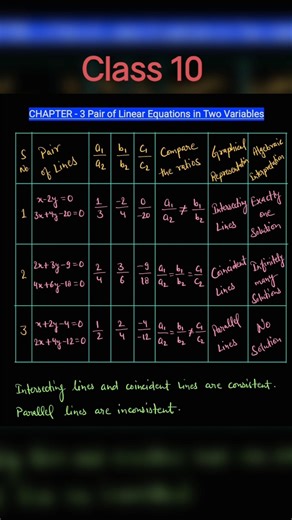 Class 10
CHAPTER - 3 Pair of Linear Equations in Two Variables
S No | Pair of Lines | a₁/a₂ | b₁/b₂ | C₁/C₂ | Compare the ratios | Graphical Representation | Algebraic Interpretation
1 | x-2y=0 | 1/3 | -2/4 | 0/-20 | a₁/a₂ ≠ b₁/b₂ | Intersecting Lines | Exactly one Solution
3x+4y-20=0
2 | 2x+3y-9=0 | 2/4 | 3/6 | -9/18 | a₁/a₂ = b₁/b₂ = C₁/C₂ | Coincident Lines | Infinitely many Solutions
4x+6y-18=0
3 | x+2y-4=0 | 1/2 | 2/4 | -4/-12 | a₁/a₂ = b₁/b₂ ≠ C₁/C₂ | Parallel Lines | No Solution
2x+4y-12=0
Intersecting lines and coincident lines are consistent.
Parallel lines are inconsistent.